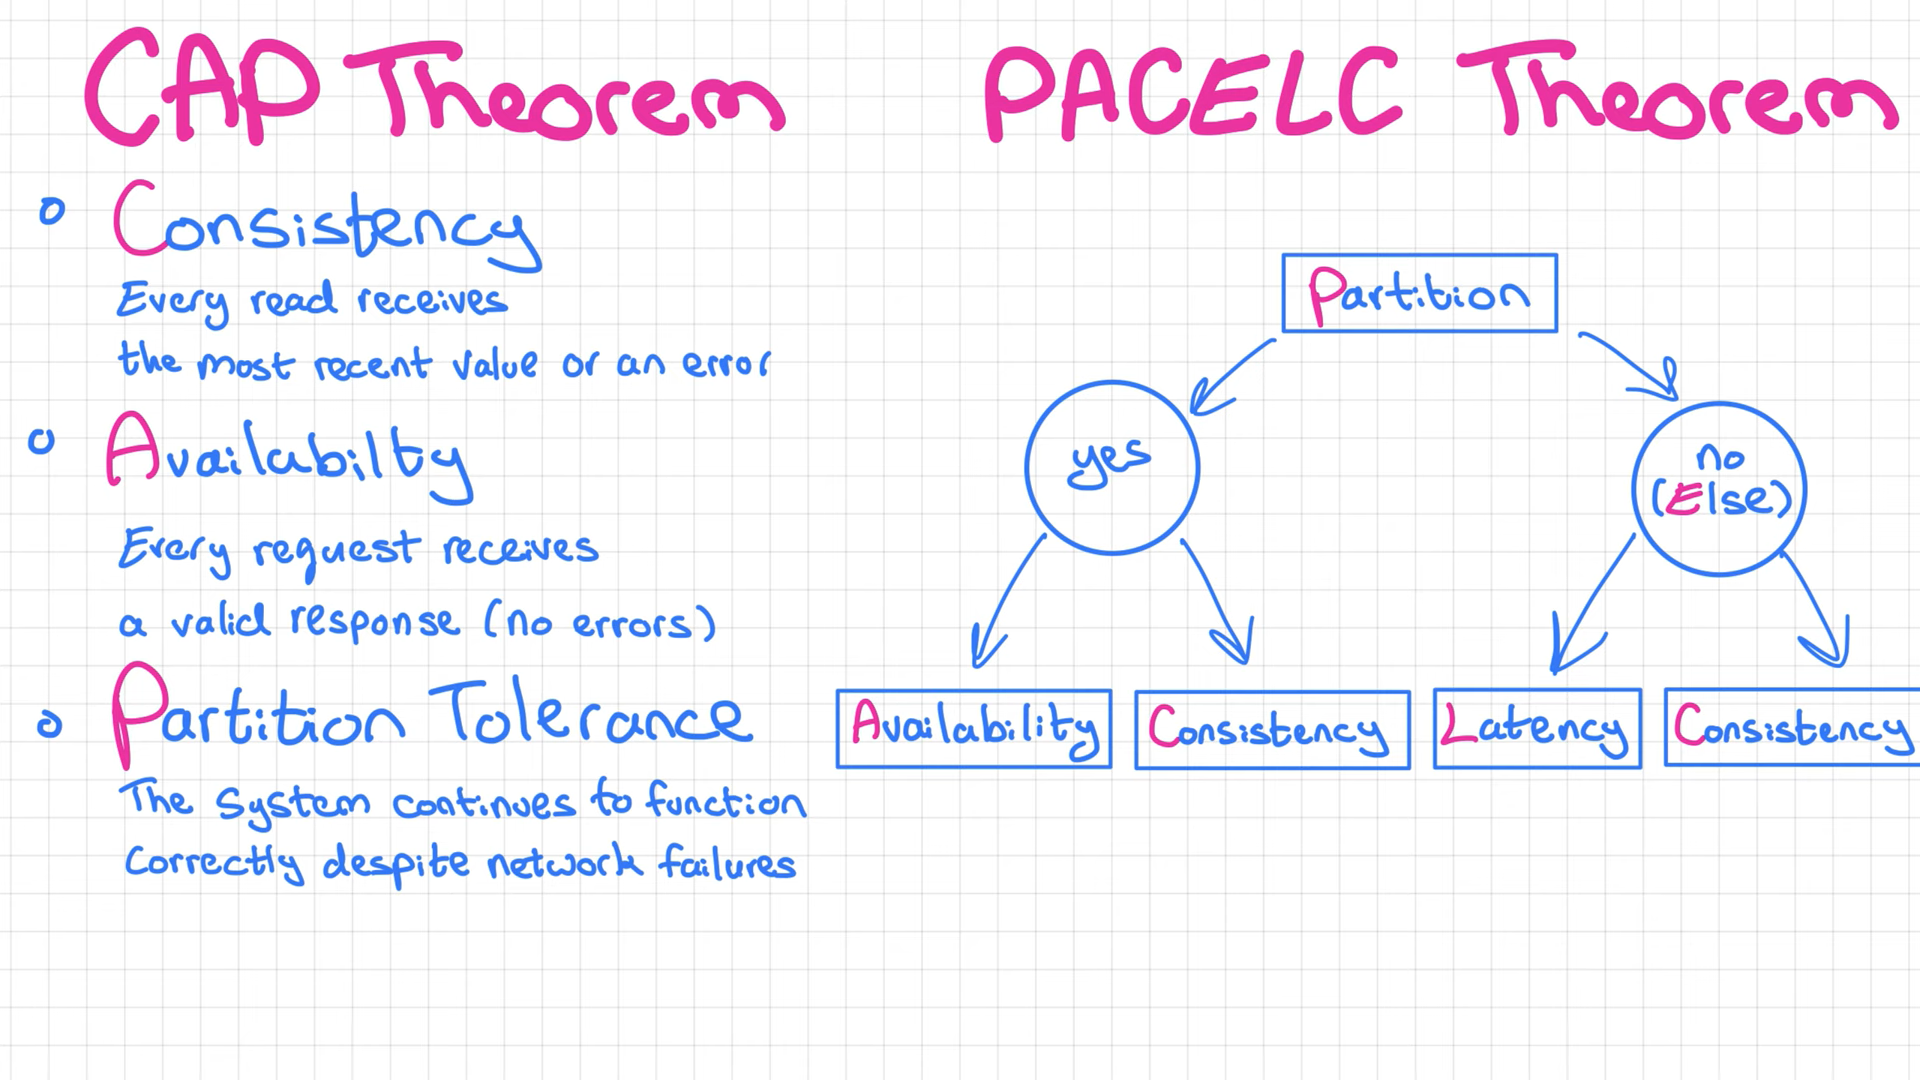 CAP Theorem
Consistency
Every read receives
the most recent value or an error
Availabilty
Every request receives
a valid response (no errors)
Partition Tolerance
The System continues to function
Correctly despite network failures
PACELC Theorem
Partition
yes
no
(Else)
Availability
Consistency
Latency
Consistency